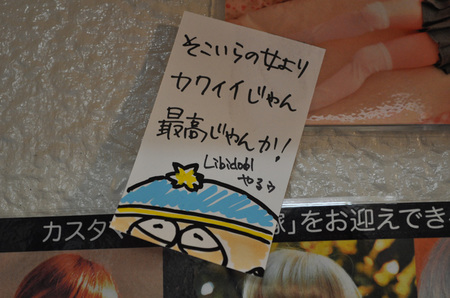 そこいらの女より
カワイイじゃん
最高じゃんか!
Libidobl
やるゥ
カスタマ
」をお迎えでき